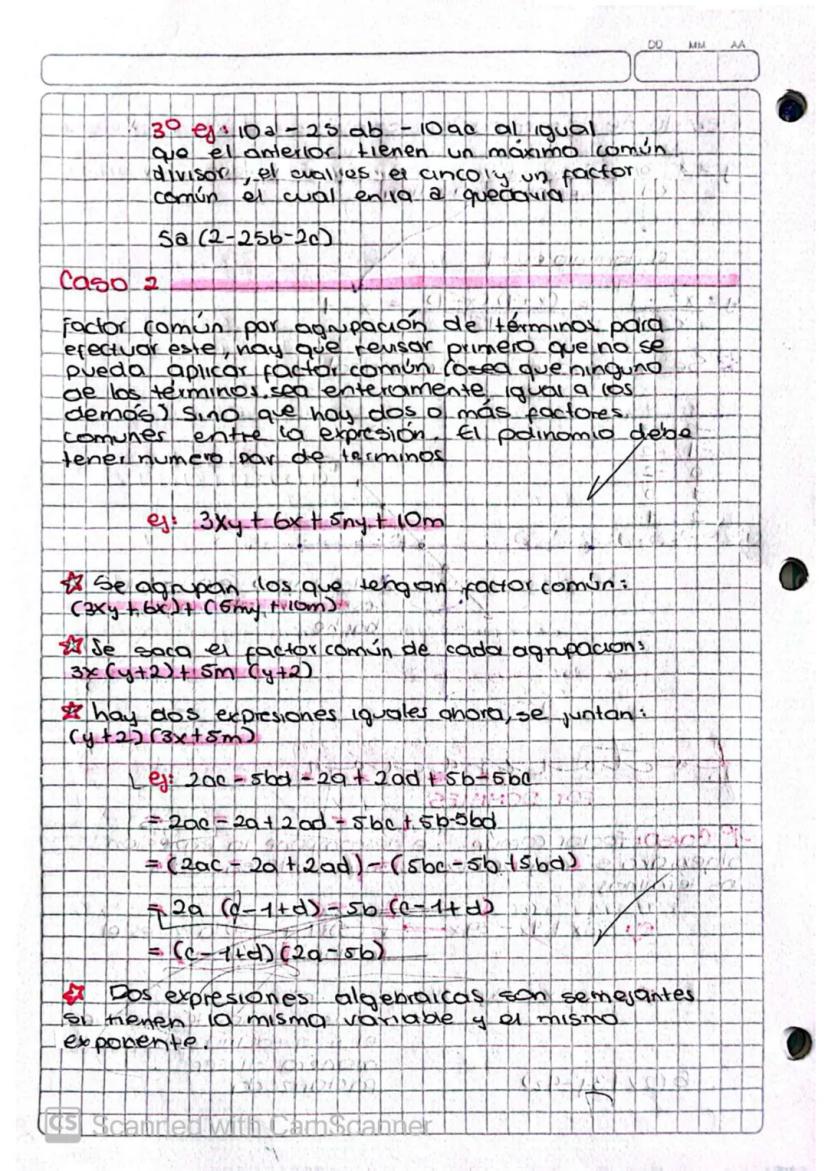 DD MM AA
3º ej: 10a - 25 ab - 10ac al igual
que el anterior tienen un máximo común
divisor, el cual es el cinco y un factor
común el cual en la a quedaria
5a (2-25b-2c)
Caso 2
Factor común por agrupación de términos para
efectuar este, hay que revisar primero que no se
pueda aplicar factor común (osea que ninguno
de los términos sea enteramente igual a los
demás) Sino que hay dos o más factores
comunes entre la expresión. El polinomio debe
tener numero par de terminos
ej: 3xy + 6x + 5my + 10m
☆ Se agrupan los que tengan factor común:
(3xy + 6x) + (5my + 10m)
☆ Se saca el factor común de cada agrupacion:
3x (y+2) + 5m (y+2)
☆ hay dos expresiones iguales ahora, se juntan:
(y+2) (3x+5m)
ej: 2ac - 5bd - 2a + 2ad + 5b - 5bc
= 2ac - 2a + 2ad - 5bc + 5b - 5bd
= (2ac - 2a + 2ad) - (5bc - 5b + 5bd)
= 2a (c-1+d) - 5b (c-1+d)
= (c-1+d) (2a-5b)
☆ Dos expresiones algebraicas son semejantes
si tienen la misma variable y el mismo
exponente.
CS Scanned with CamScanner